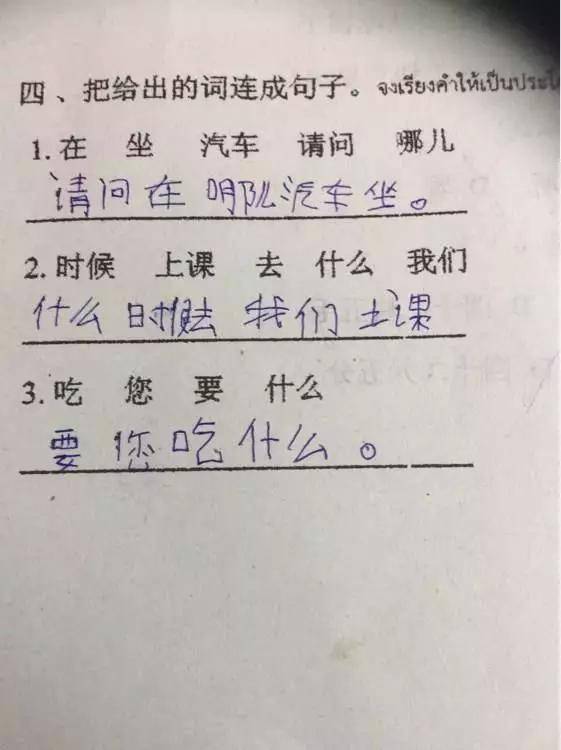 四、把给出的词连成句子。จงเรียงคำให้เป็นประโ
1. 在 坐 汽车 请问 哪儿
请问在哪儿汽车坐。
2. 时候 上课 去 什么 我们
什么时候去我们上课
3. 吃 您 要 什么
要您吃什么。